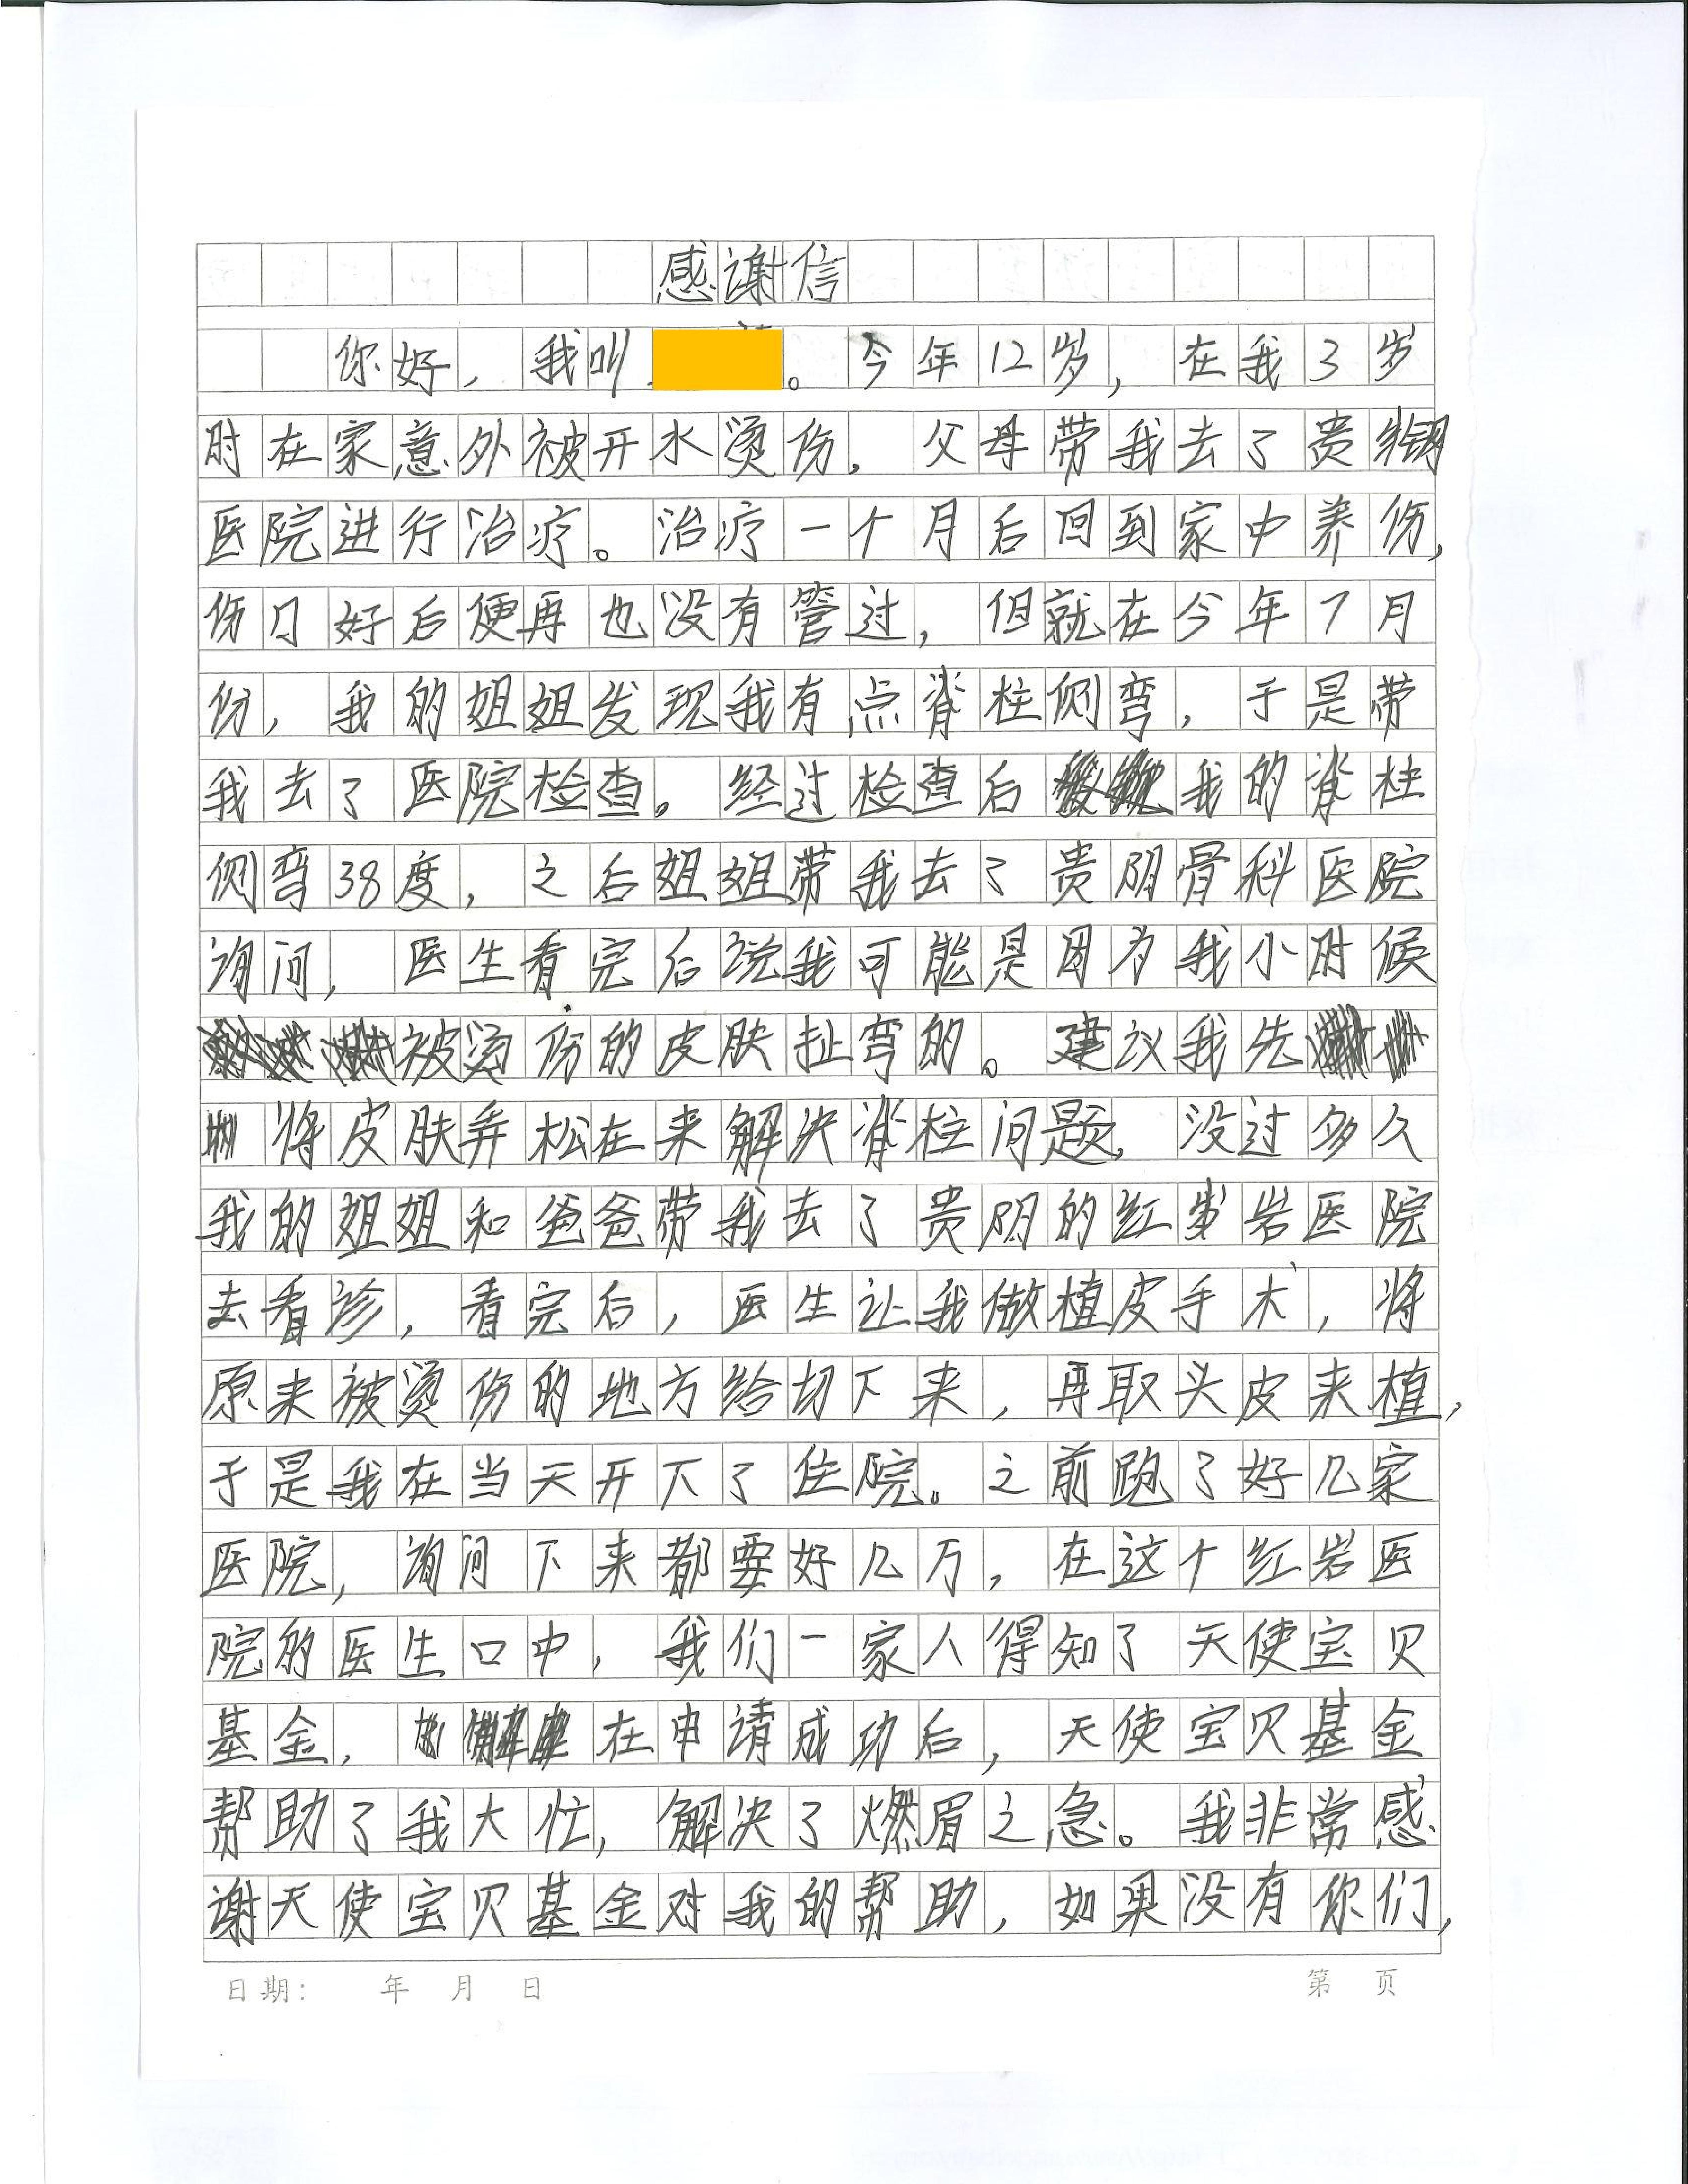 感谢信
你好，我叫。今年12岁，在我3岁
时在家意外被开水烫伤。父母带我去了贵钢
医院进行治疗。治疗一个月后回到家中养伤，
伤口好后便再也没有管过，但就在今年7月
份，我的姐姐发现我有点脊柱侧弯，于是带
我去了医院检查。经过检查后我的脊柱
侧弯38度，之后姐姐带我去了贵阴骨科医院
询问，医生看完后说我可能是因为我小时候
被烫伤的皮肤扯弯的。建议我先
将皮肤弄松在来解决脊柱问题，没过多久
我的姐姐和爸爸带我去了贵阴的红岩医院
去看诊，看完后，医生让我做植皮手术，将
原来被烫伤的地方给切下来，再取头皮来植，
于是我在当天开下了住院。之前跑了好几家
医院，询问下来都要好几万，在这个红岩医
院的医生口中，我们一家人得知了天使宝贝
基金，在申请成功后，天使宝贝基金
帮助了我大忙，解决了燃眉之急。我非常感
谢天使宝贝基金对我的帮助，如果没有你们，
日期： 年 月 日 第 页